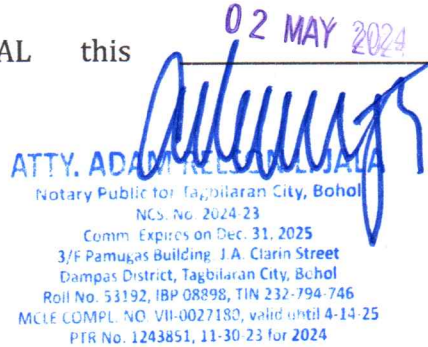 02 MAY 2024
AL this
ATTY. ADAM RELSON L. JALA
Notary Public for Tagbilaran City, Bohol
NCS. No. 2024-23
Comm. Expires on Dec. 31, 2025
3/F Pamugas Building J.A. Clarin Street
Dampas District, Tagbilaran City, Bohol
Roll No. 53192, IBP 08898, TIN 232-794-746
MCLE COMPL. NO. VII-0027180, valid until 4-14-25
PTR No. 1243851, 11-30-23 for 2024